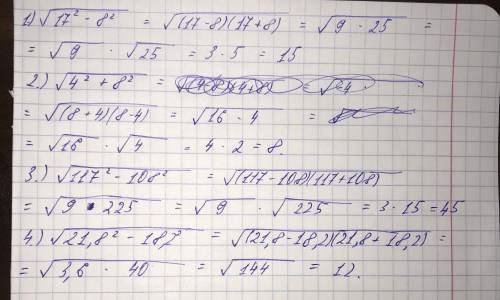 1) √17² - 8² = √(17-8)(17+8) = √9 · 25 =
= √9 · √25 = 3 · 5 = 15
2.) √4² + 8² = = √-4
= √(8+4)(8-4) = √16 · 4 =
= √16 · √4 = 4 · 2 = 8.
3.) √117² - 108² = √(117-108)(117+108)
= √9 · 225 = √9 · √225 = 3 · 15 = 45
4.) √21,8² - 18,2² = √(21,8-18,2)(21,8+18,2) =
= √3,6 · 40 = √144 = 12.